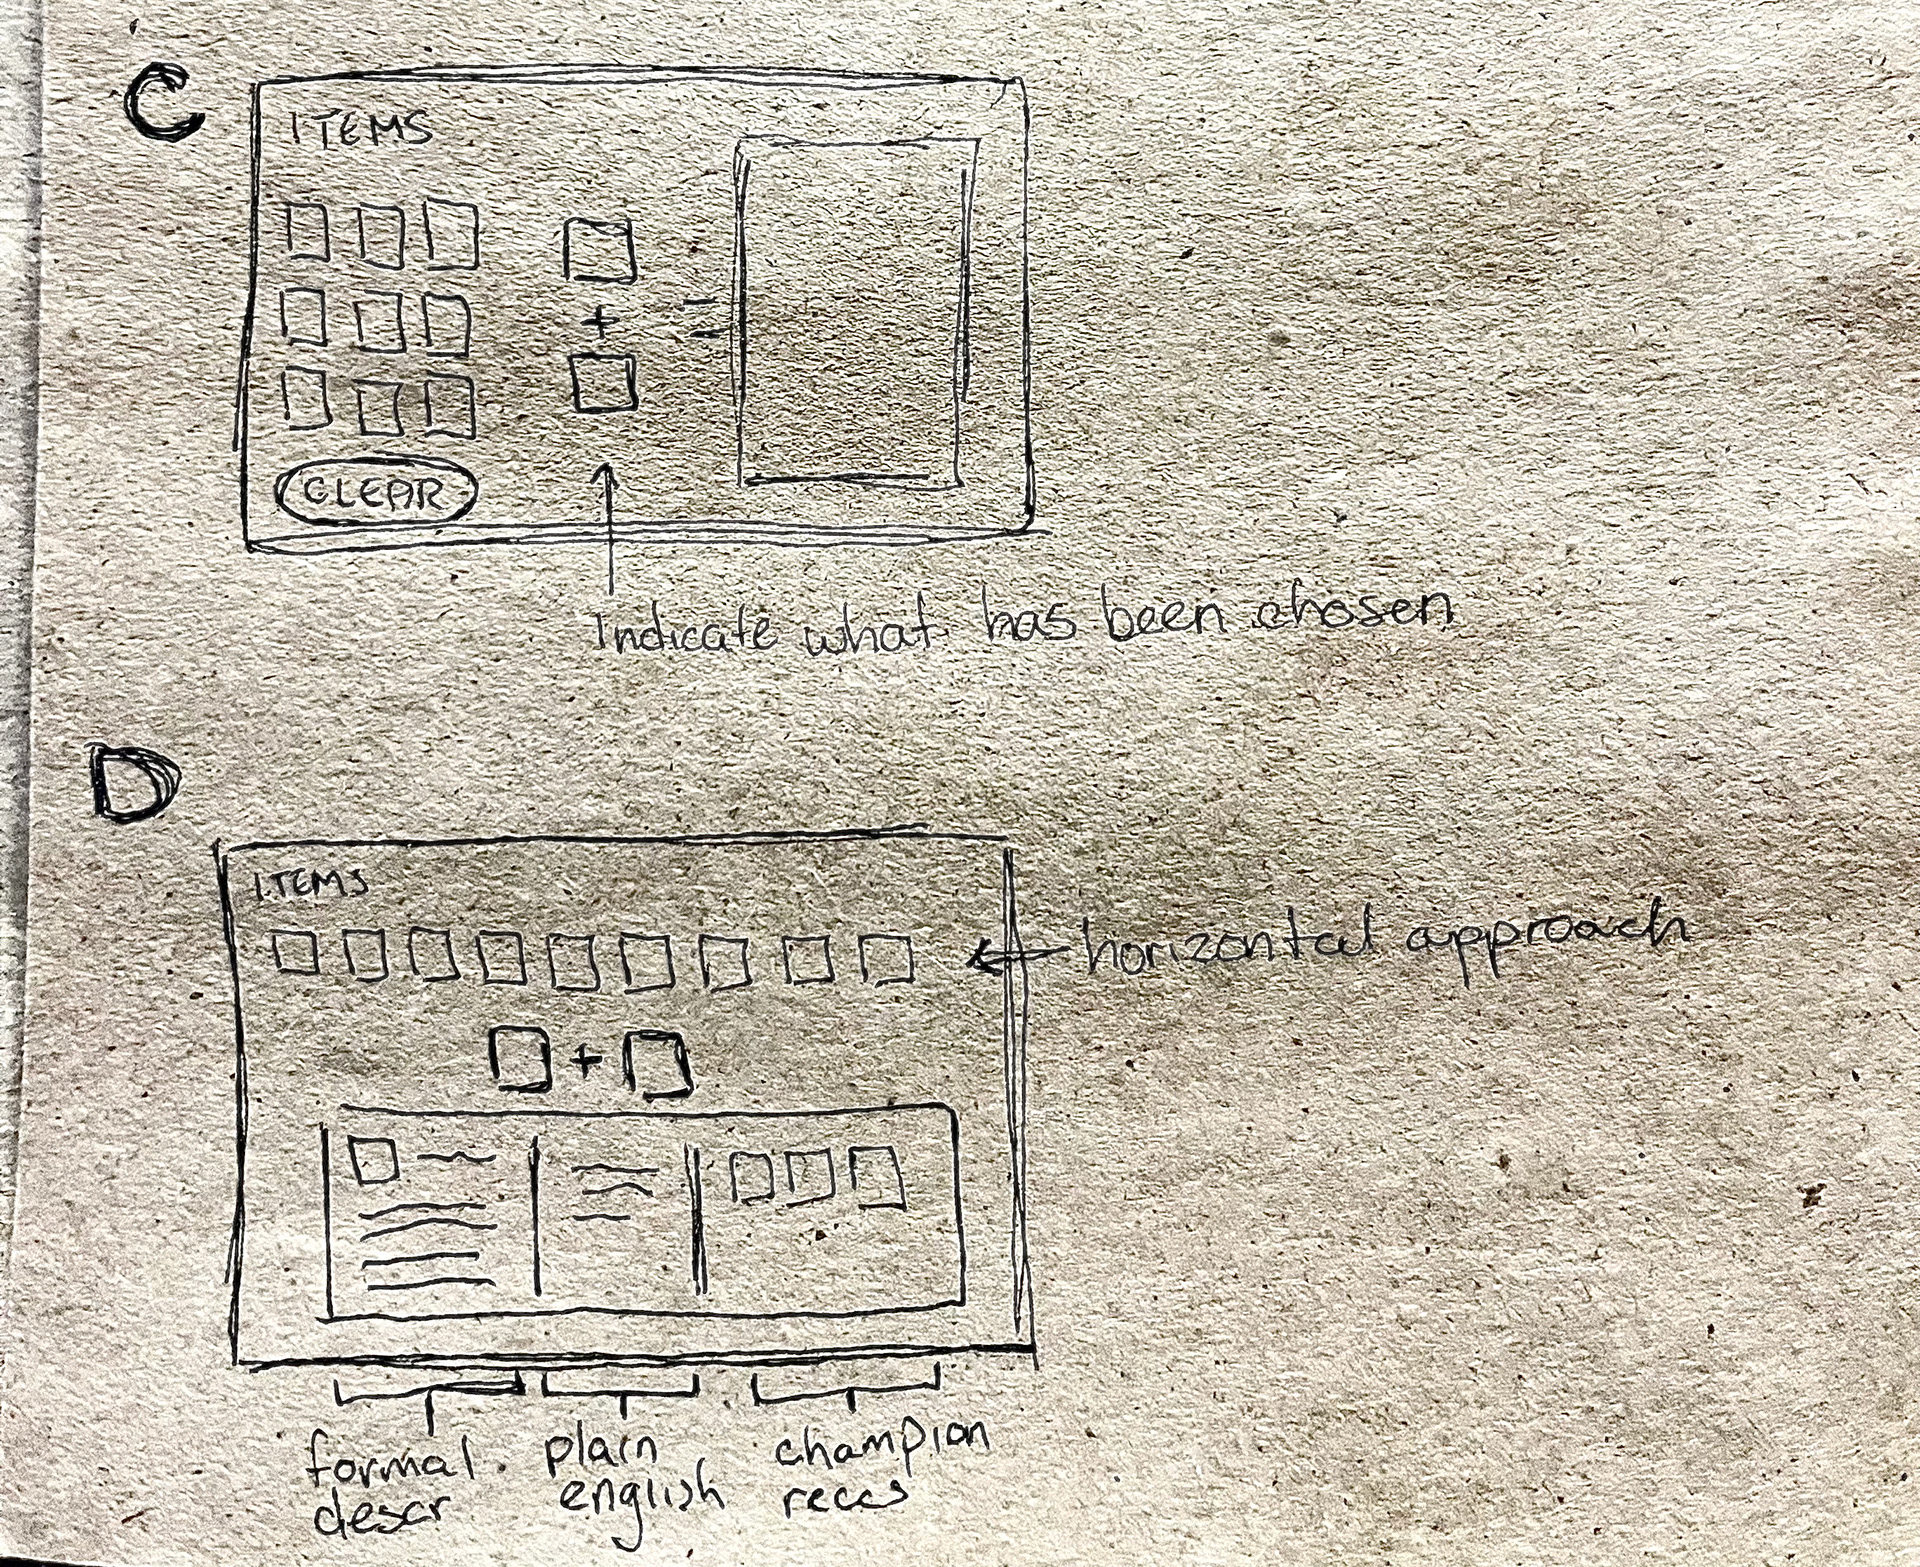 C
ITEMS
+
=
CLEAR
Indicate what has been chosen
D
ITEMS
horizontal approach
+
formal plain champion
descr english reccs